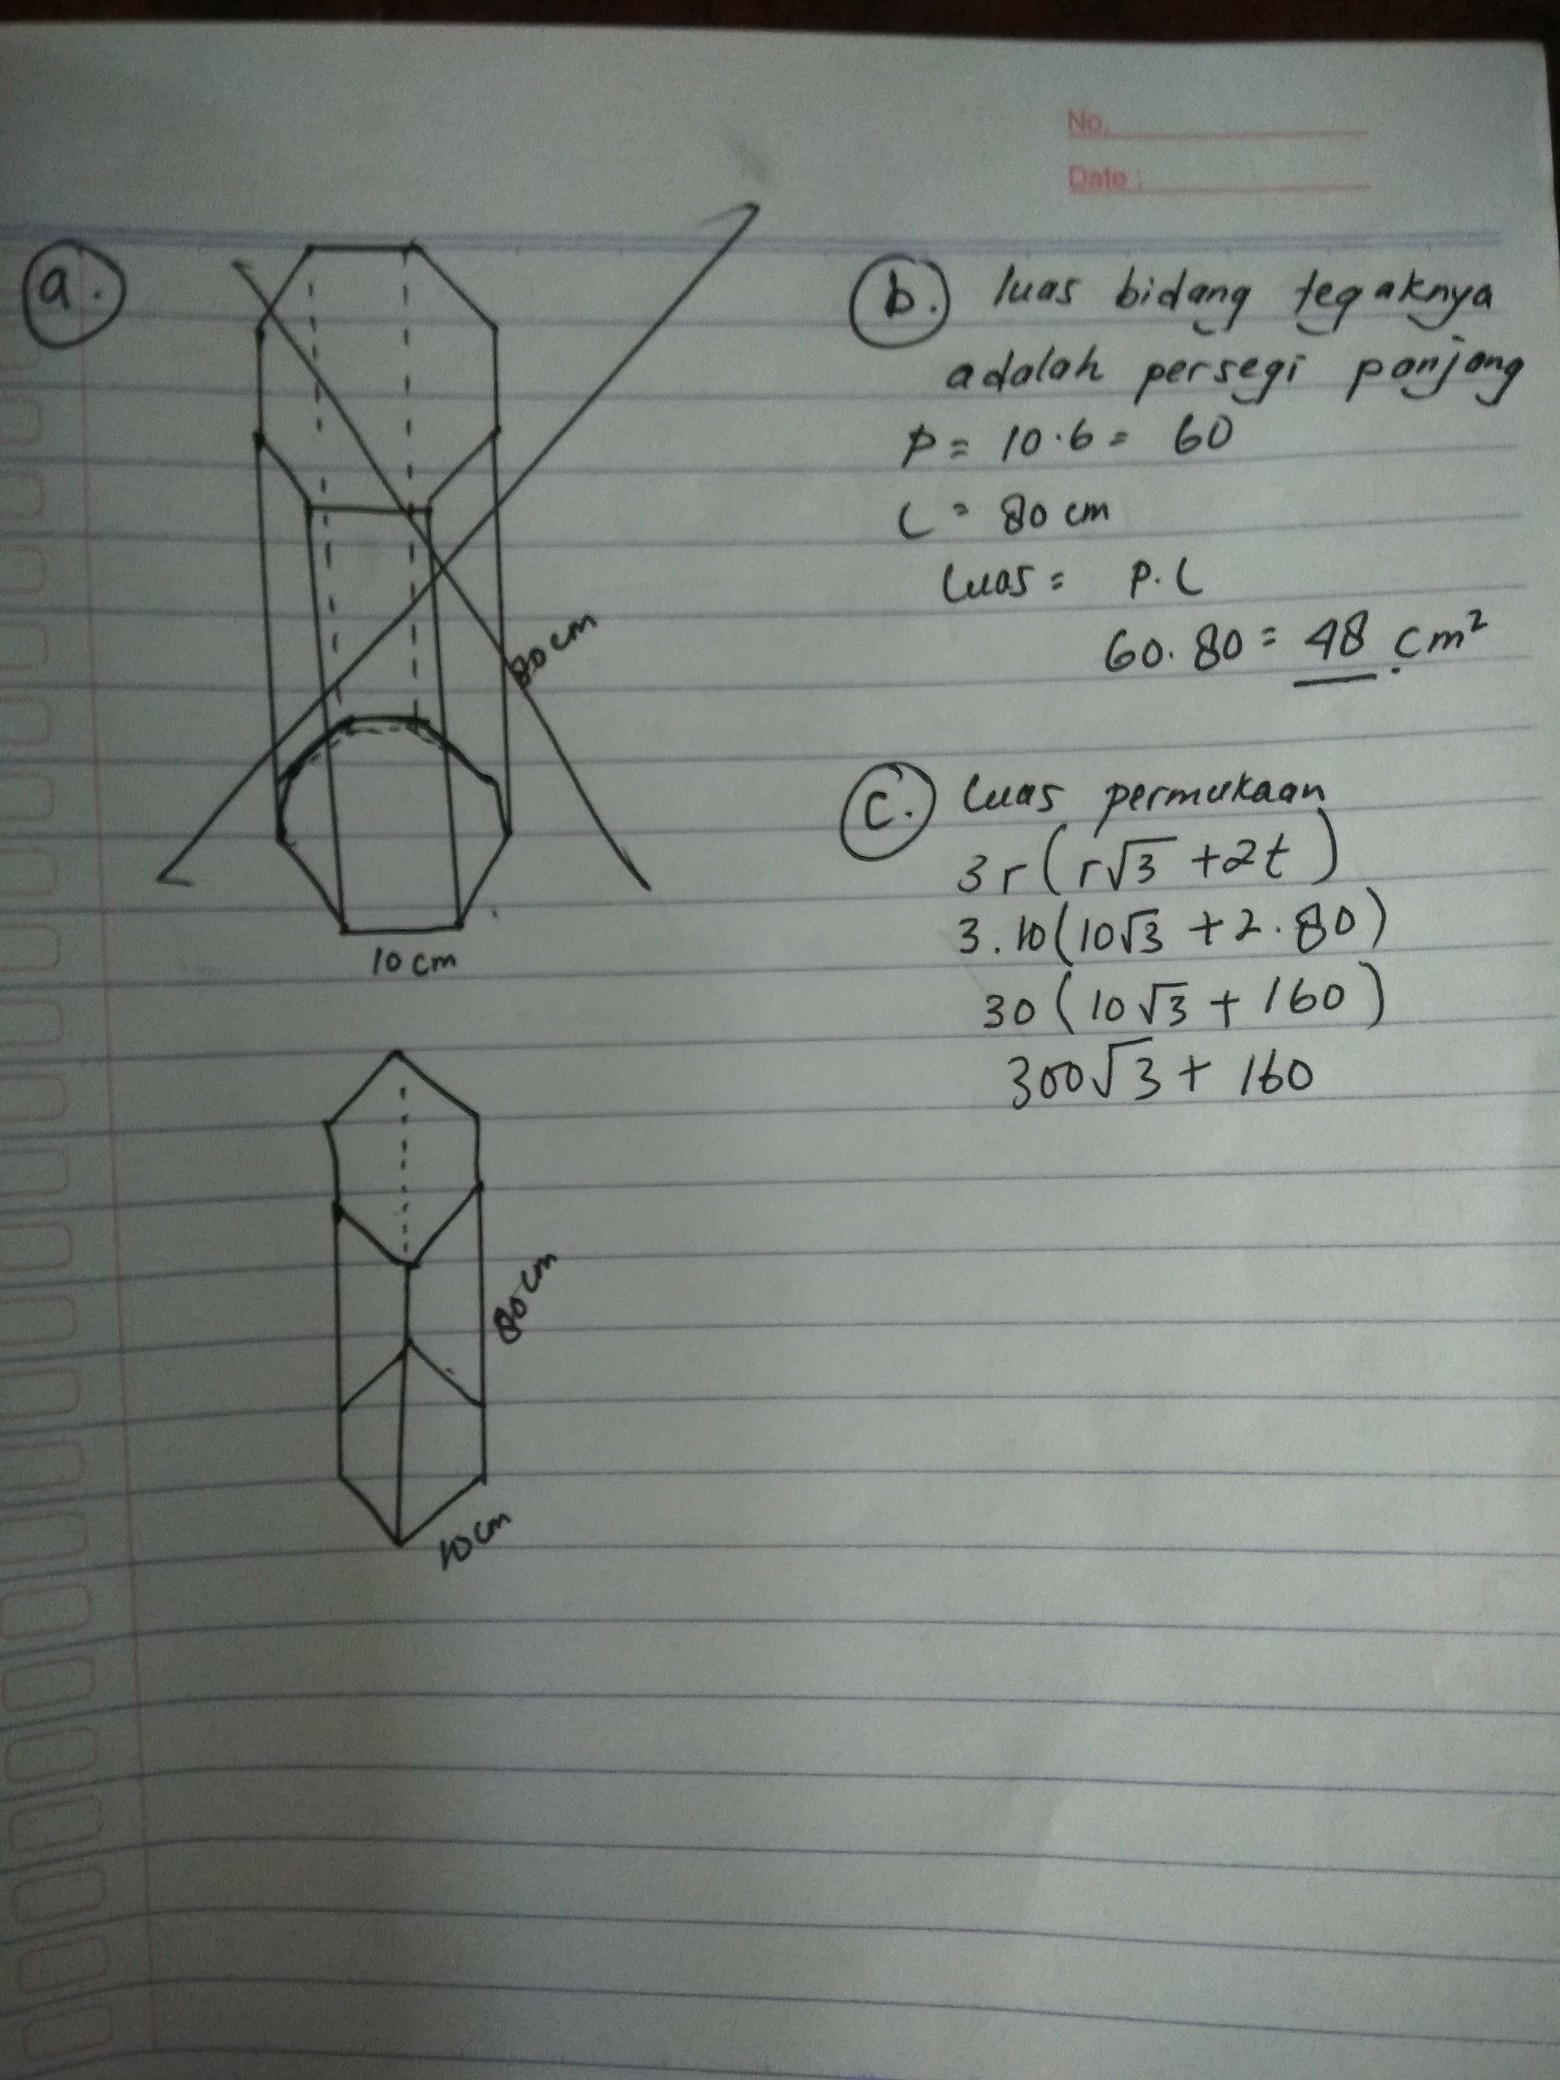 No.
Date :
a.
80 cm
10 cm
80 cm
10 cm
b. luas bidang tegaknya
adalah persegi panjang
P = 10 · 6 = 60
L = 80 cm
Luas = P. L
60. 80 = 48 cm²
c. Luas permukaan
3r(r√3 + 2t)
3. 10(10√3 + 2. 80)
30(10√3 + 160)
300√3 + 160